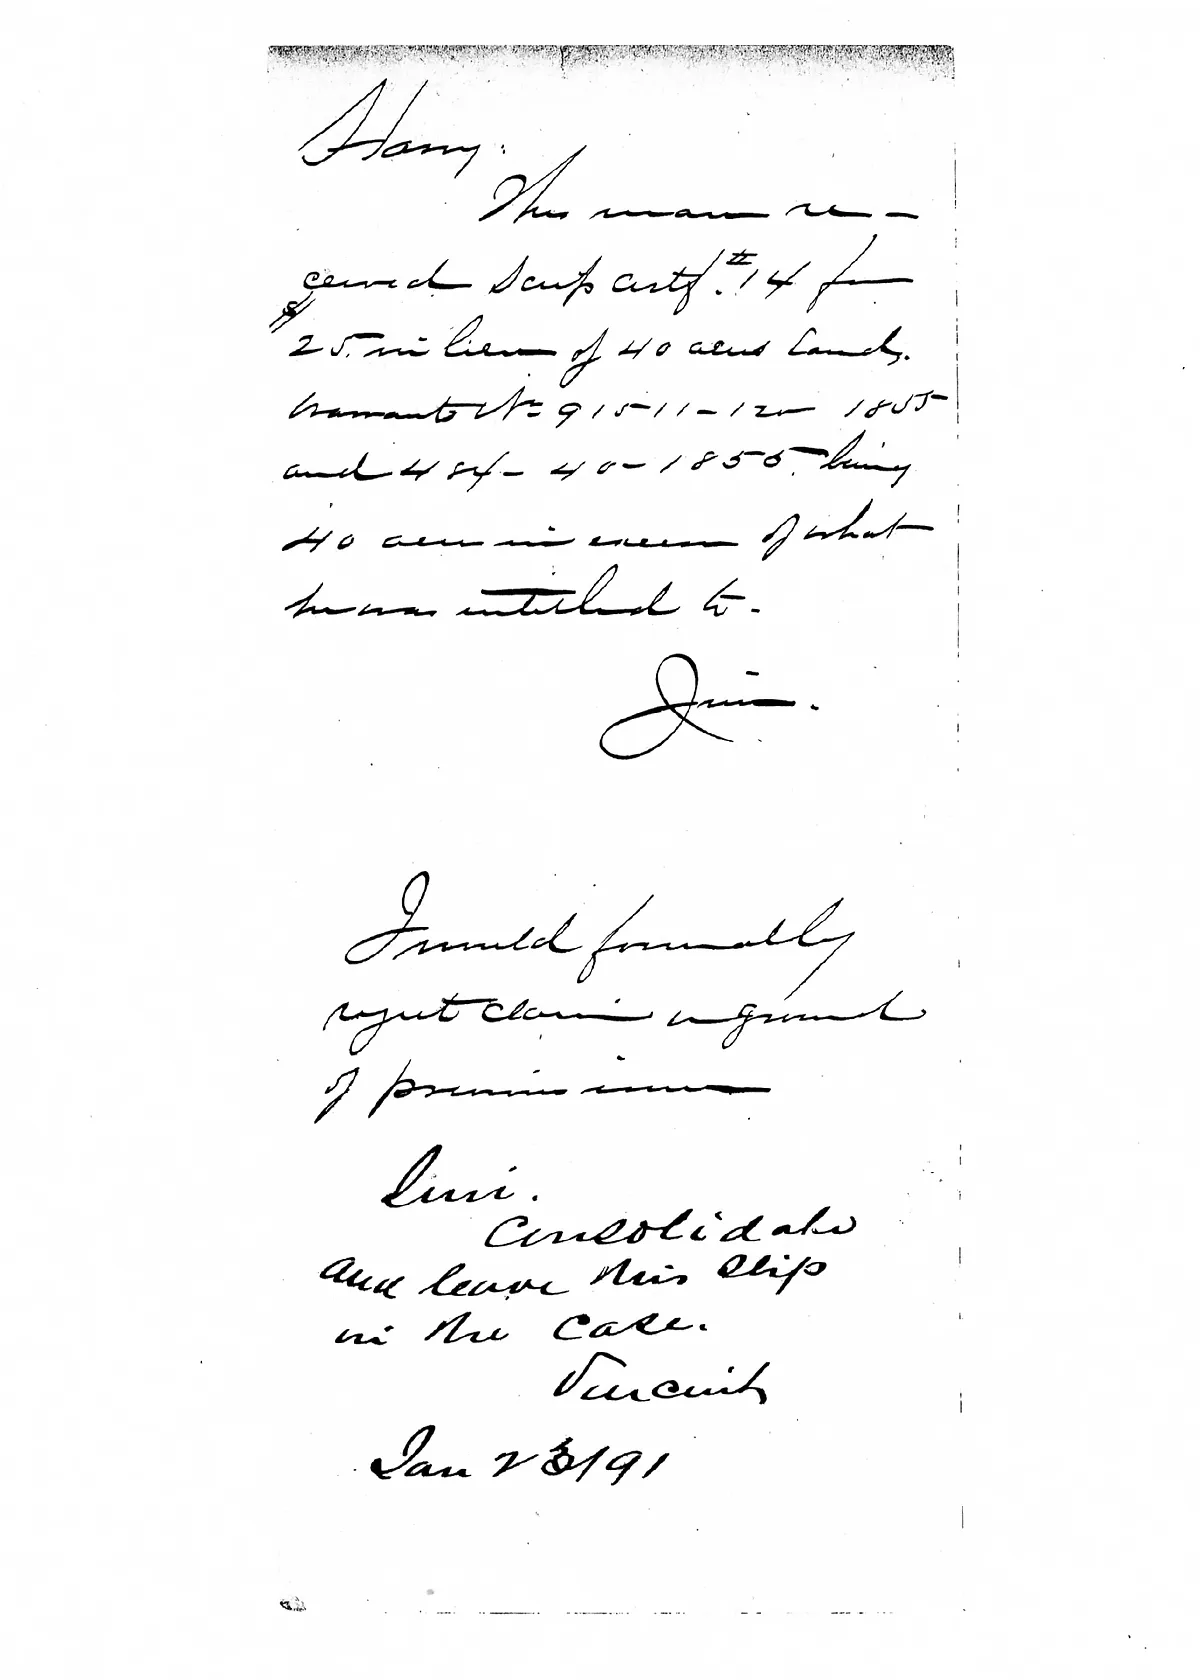 Harry:
This man re-
ceived Scrip Certf. #14 for
$25. in lieu of 40 acres Land.
Warrants No 91511-120-1855
and 484-40-1855. being
40 acres in excess of what
he was intitled to.
Jim.
I would formally
reject claim on ground
of previous issue
Jim.
Consolidate
and leave this slip
in the case.
Vincent
Jan 23/91